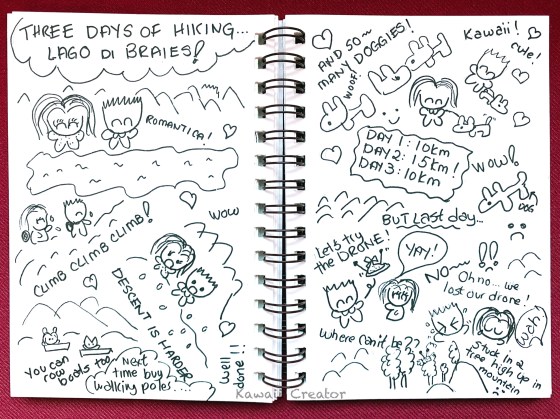 THREE DAYS OF HIKING...
LAGO DI BRAIES!
ROMANTICA!
WOW
CLIMB CLIMB CLIMB!
DESCENT IS HARDER
You can
row
boats too
Next
time buy
walking poles....
Well
done!!
AND SO~
MANY DOGGIES!
WOOF!
Kawaii!
cute!
DAY 1: 10km
DAY 2: 15km!
DAY 3: 10km
WOW!
DOG
BUT Last day...
Let's try
the DRONE!
YAY!
NO~
!!
Oh no... we
lost our drone!
Where can't be??
Wah
Stuck in a
tree high up in
mountain
Kawaii Creator